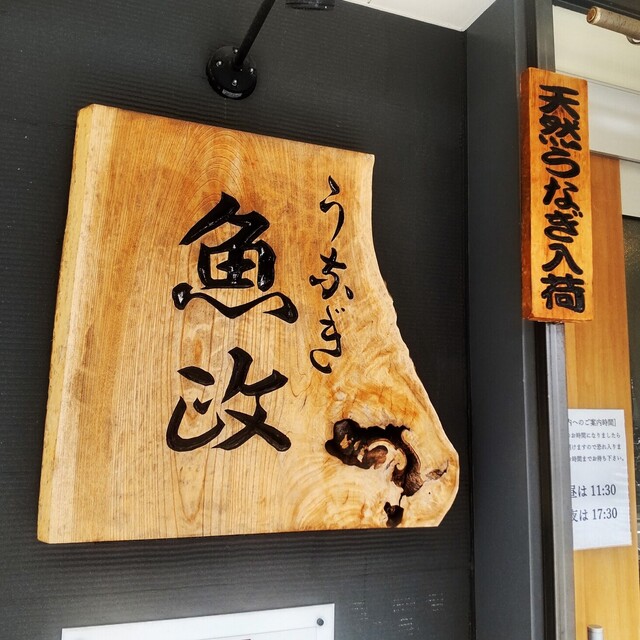 うなぎ
魚政
天然うなぎ入荷
内へのご案内時間】
お時間になりましたら
けますので恐れ入りま
時間までお待ち下さい。
昼は 11:30
夜は 17:30